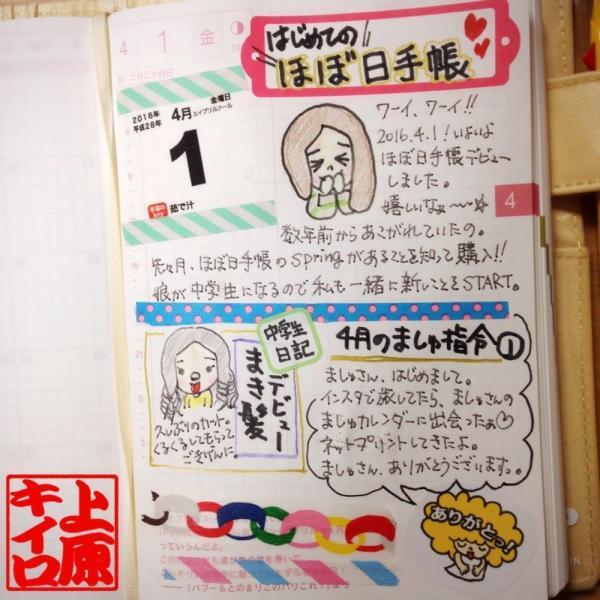 4 1 金
日:二月二十四日
2016年
平成28年
4月
金曜日
エイプリルフール
1
茹で汁
はじめての
ほぼ日手帳
ワーイ、ワーイ!!
2016.4.1!いよいよ
ほぼ日手帳デビュー
しました。
嬉しいなぁ〜〜☆
数年前からあこがれていたの。
先々月、ほぼ日手帳のspringがあることを知って購入!!
娘が中学生になるので私も一緒に新しいことをSTART。
4
中学生
日記
デビュー
まき髪
久しぶりのカット。
くるくるしてもらって
ごきげんに
4月のましゅ指令①
ましゅさん、はじめまして。
インスタで旅してたら、ましゅさんの
まじゅカレンダーに出会ったぁ♡
ネットプリントしてきたよ。
ましゅさん、ありがとうございますっ。
ありがとっ!
っていうんだよ。
──『バブー&とのまりこのパリこれ!』より
上原
キイロ